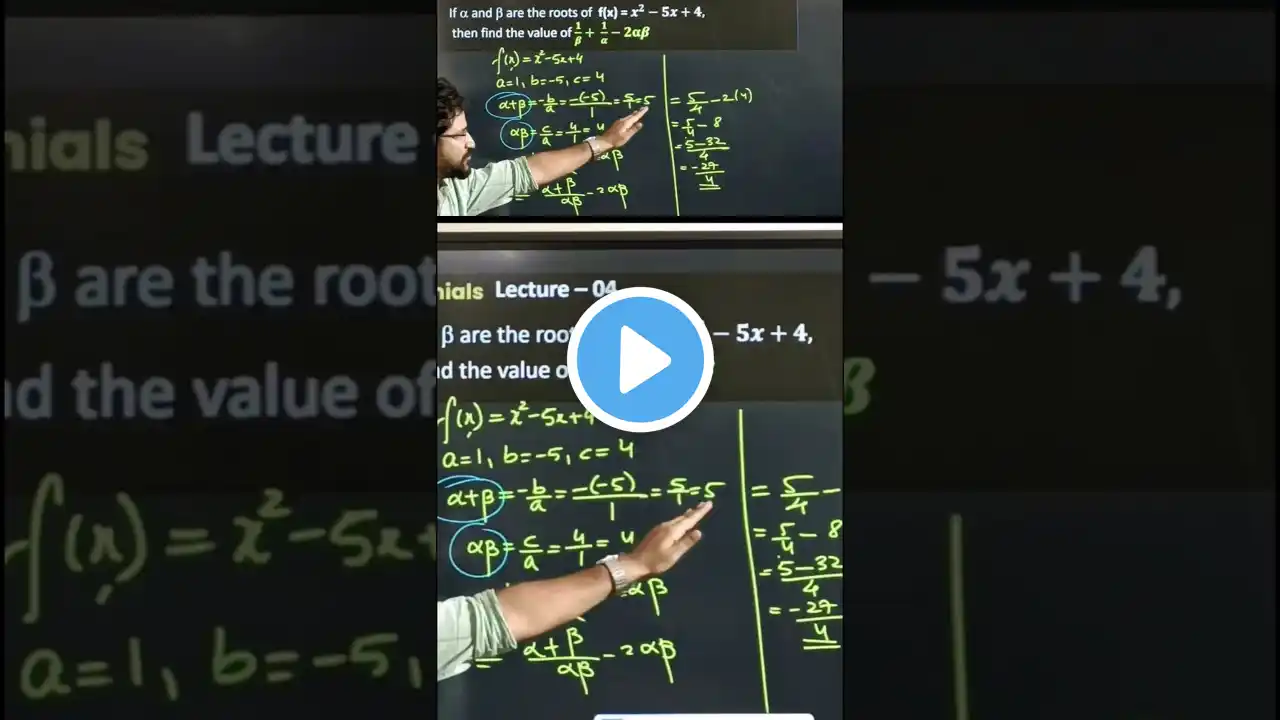 If α and β are the roots of f(x) = x² − 5x + 4,
then find the value of 1/β + 1/α − 2αβ
f(x) = x²-5x+4
a=1, b=-5, c=4
α+β = -b/a = -(-5)/1 = 5/1 = 5
αβ = c/a = 4/1 = 4
αβ
= α+β/αβ - 2αβ
= 5/4 - 2(4)
= 5/4 - 8
= 5-32/4
= -27/4
nials Lecture – 04
β are the roo − 5x + 4,
d the value o
f(x) = x²-5x+4
a=1, b=-5, c=4
α+β = -b/a = -(-5)/1 = 5/1 = 5
αβ = c/a = 4/1 = 4
αβ
= α+β/αβ - 2αβ
= 5/4 -
= 5/4 - 8
= 5-32/4
= -27/4
nials Lecture
β are the root − 5x + 4,
d the value of β
f(x) = x²-5x+
a=1, b=-5,